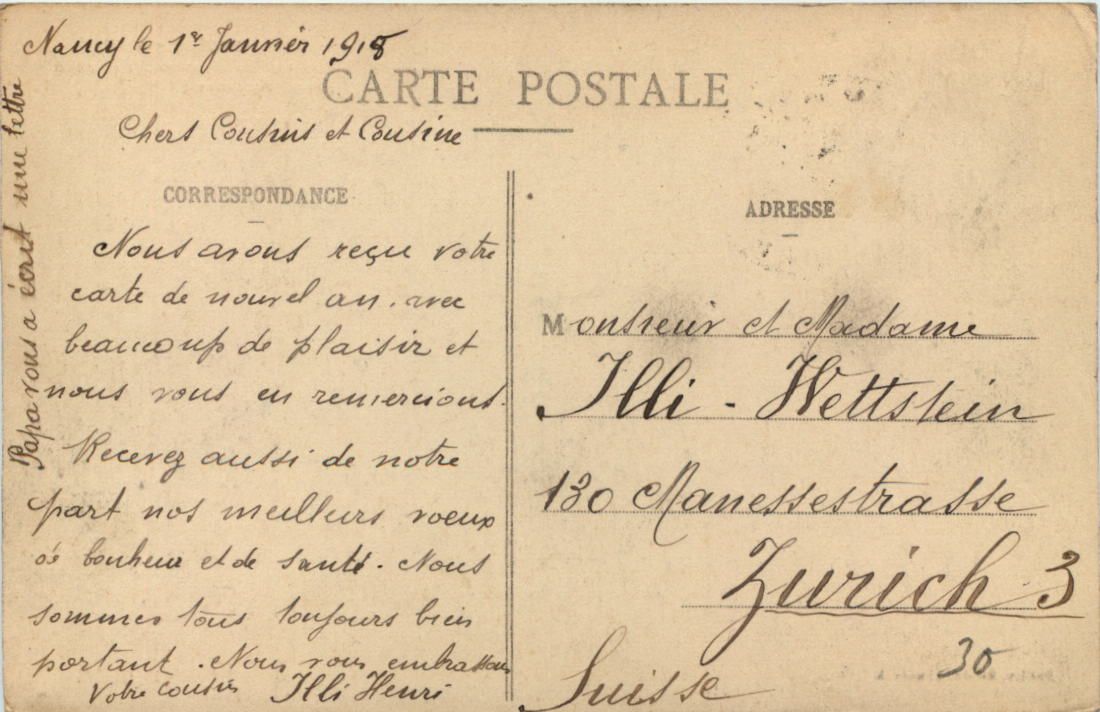 Nancy le 1er Janvier 1918
CARTE POSTALE
Chers Cousins et Cousine
CORRESPONDANCE
Nous avons reçu votre
carte de nouvel an. avec
beaucoup de plaisir et
nous vous en remercions.
Recevez aussi de notre
part nos meilleurs voeux
de bonheur et de santé. Nous
sommes tous toujours bien
portant. Nous vous embrassons
Votre cousin Illi Henri
Papa vous a écrit une lettre
ADRESSE
Monsieur et Madame
Illi - Wettstein
130 Manessestrasse
Zurich 3
Suisse
30